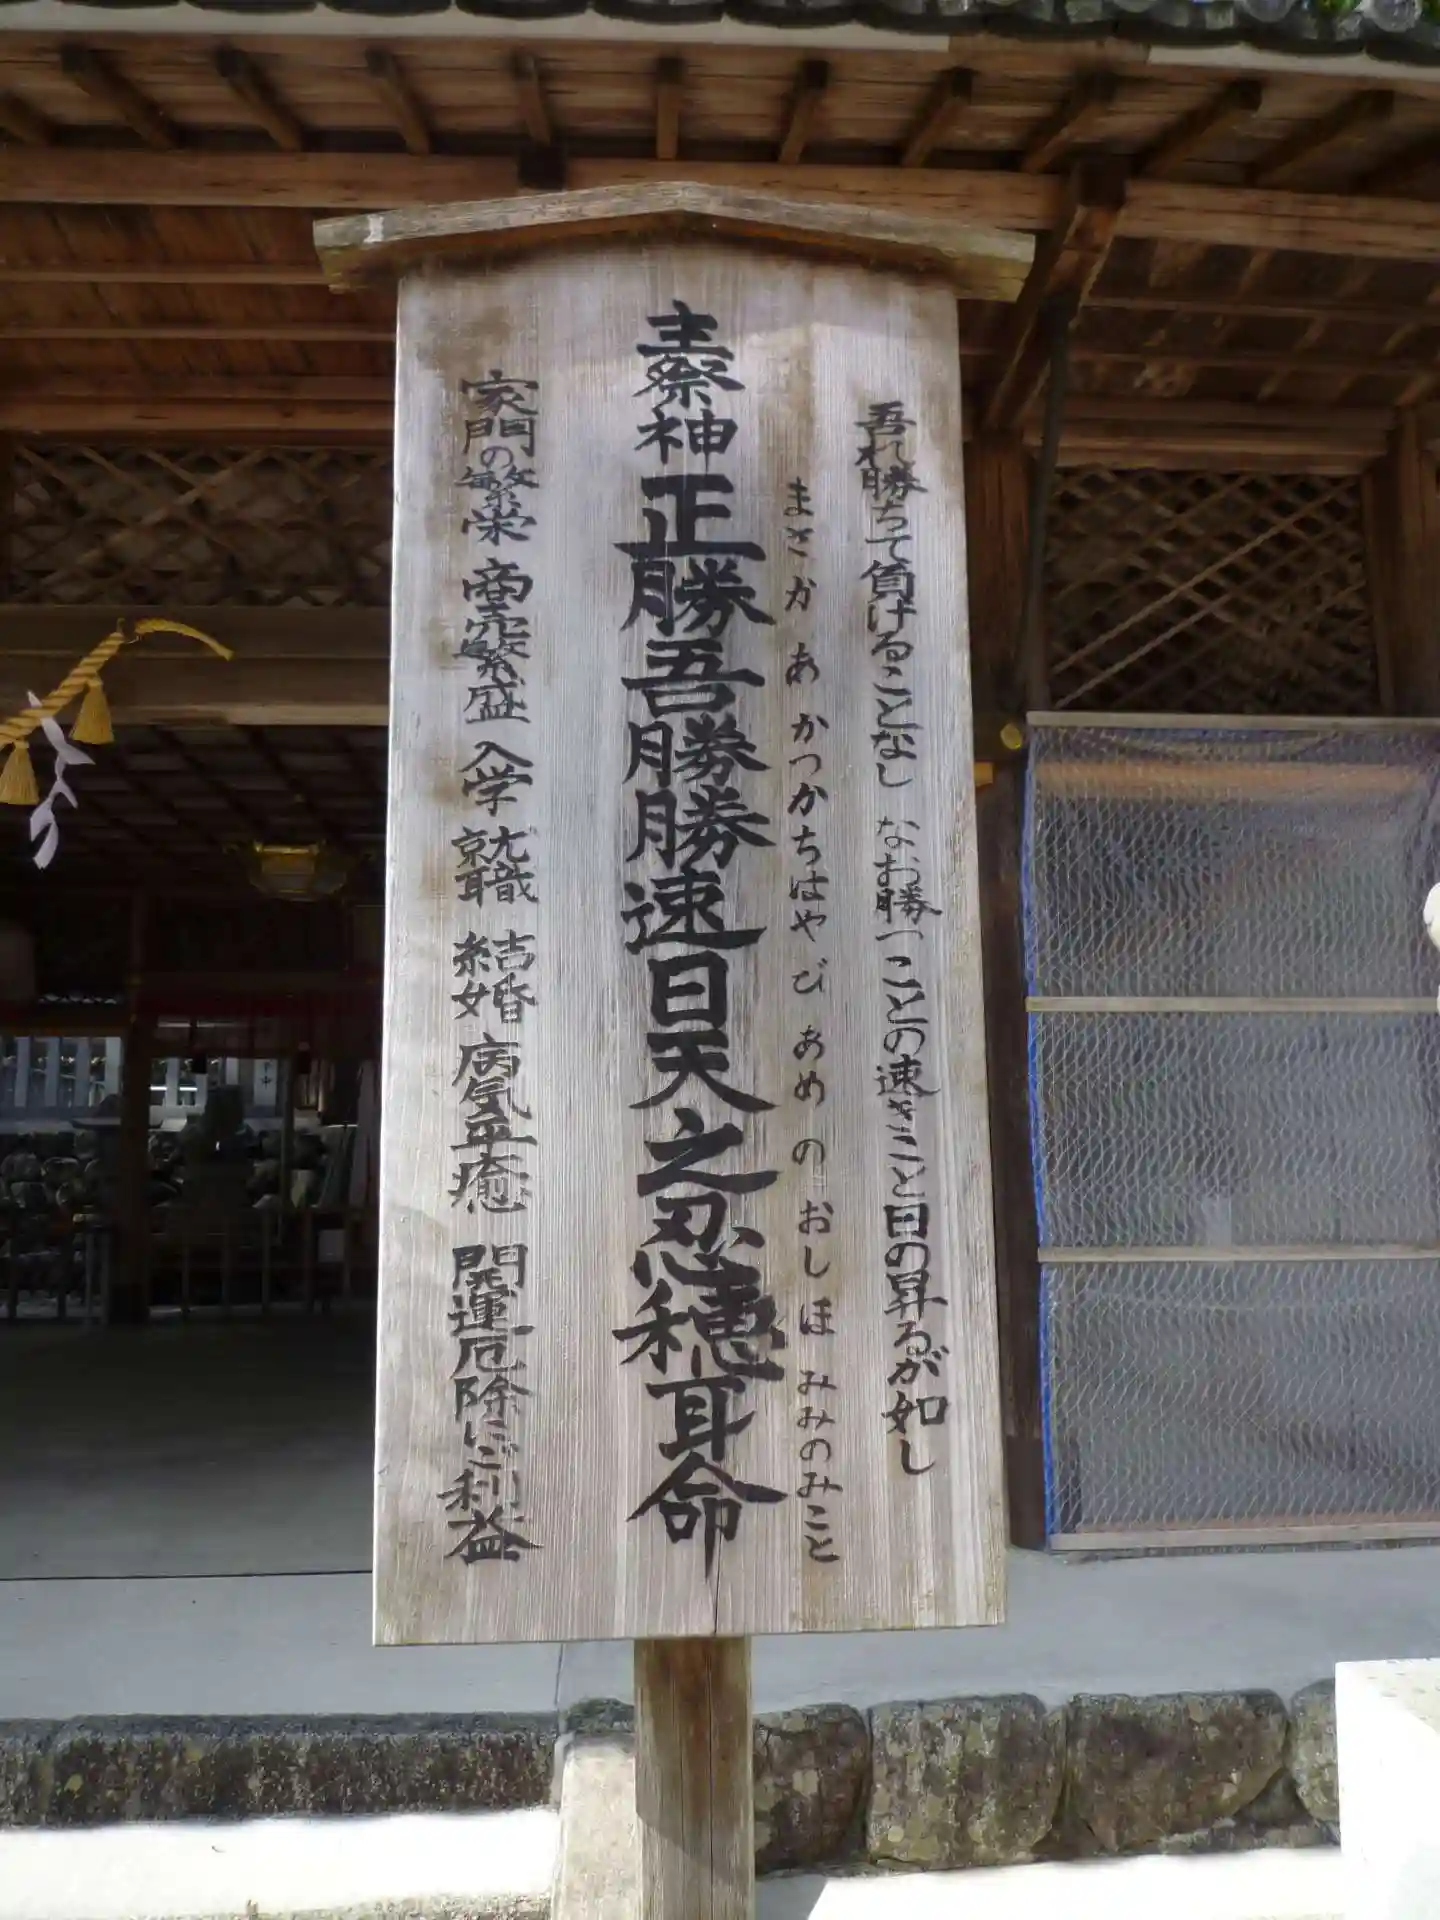 吾れ勝ちて負けることなし なお勝つことの速きこと日の昇るが如し
まさかあかつかちはやびあめのおしほみみのみこと
主祭神 正勝吾勝勝速日天之忍穂耳命
家門の繁栄 商売繁盛 入学 就職 結婚 病気平癒 開運厄除にご利益